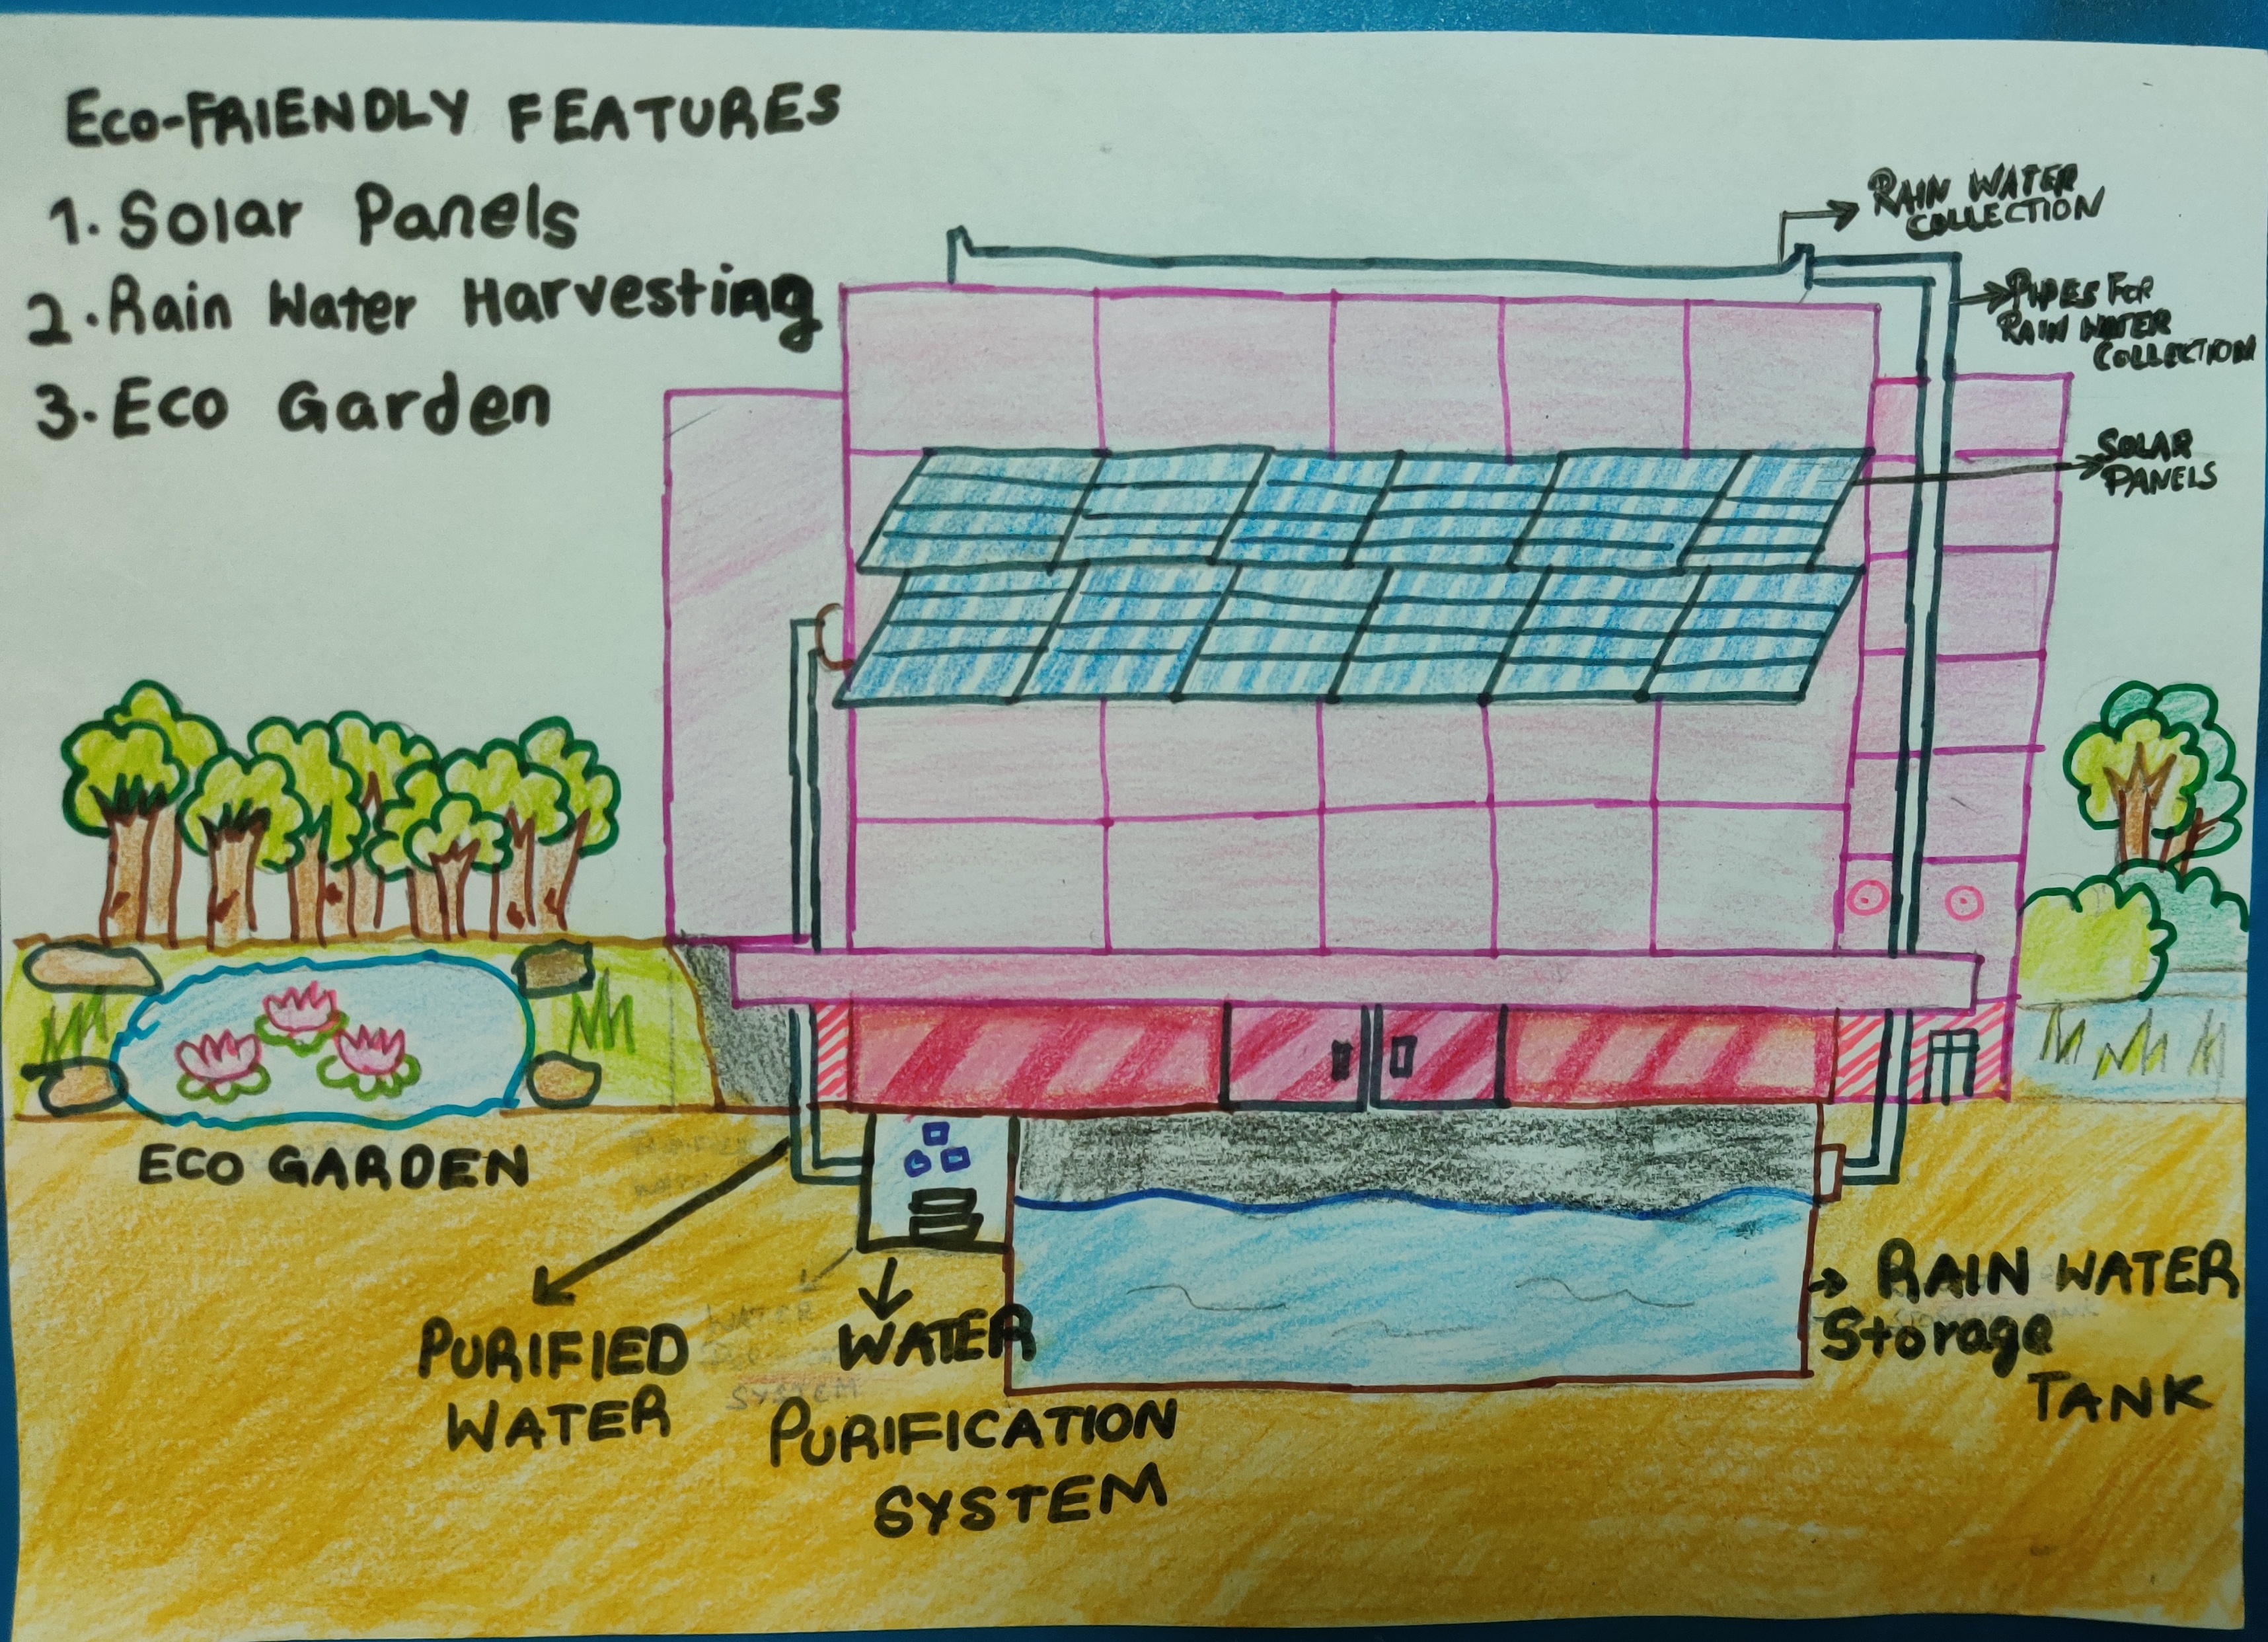 Eco-FRIENDLY FEATURES
1. Solar Panels
2. Rain Water Harvesting
3. Eco Garden
RAIN WATER
COLLECTION
PIPES FOR
RAIN WATER
COLLECTION
SOLAR
PANELS
ECO GARDEN
PURIFIED
WATER
WATER
PURIFICATION
SYSTEM
RAIN WATER
Storage
TANK
WATER
SYSTEM